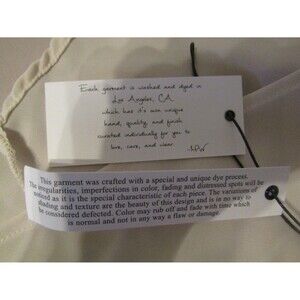 Each garment is washed and dyed in
Los Angeles, CA
which has it's own unique
hand, quality and finish
curated individually for you to
love, care, and wear.
This garment was crafted with a special and unique dye process.
The irregularities, imperfections in color, fading and distressed spots will be
noticed as it is the special characteristic of each piece. The variations of
shading and texture are the beauty of this design and is in no way to
be considered defected. Color may rub off and fade with time which
is normal and not in any way a flaw or damage.